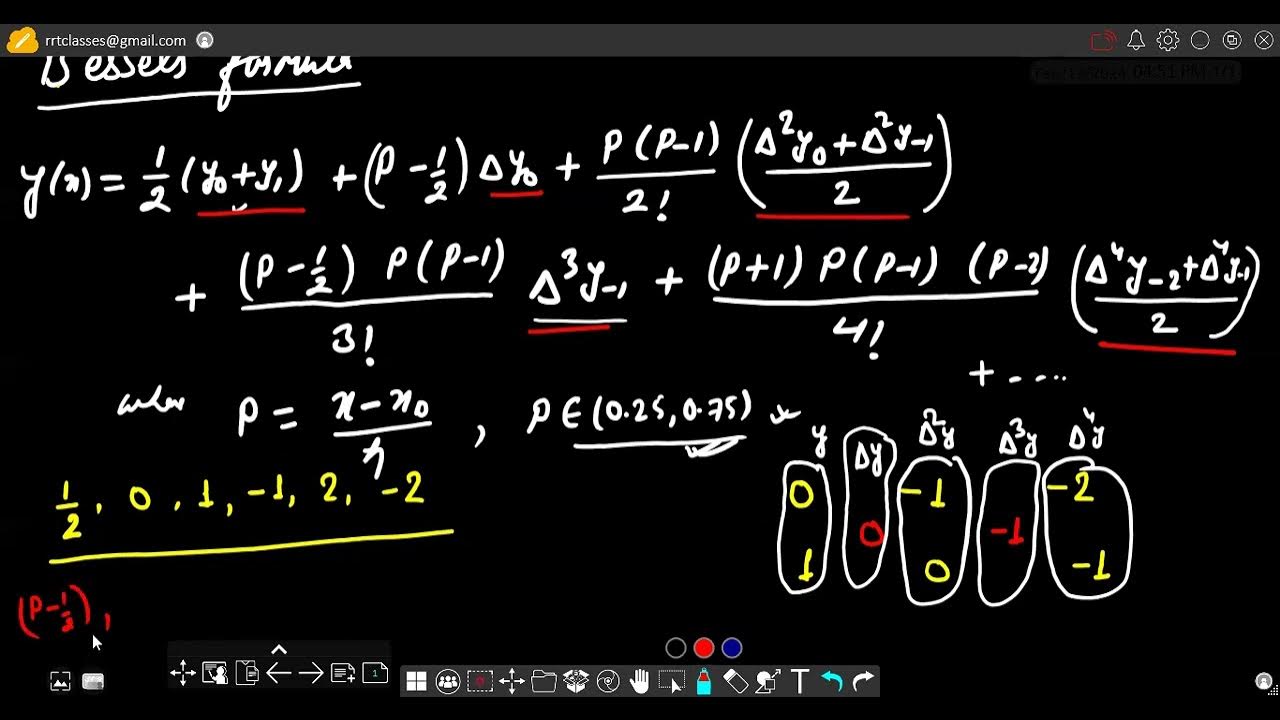 rrtclasses@gmail.com
Bessels formula
y(x) = 1/2 (y₀ + y₁) + (P - 1/2) Δy₀ + P(P-1)/2! (Δ²y₀ + Δ²y₋₁ / 2)
+ (P - 1/2) P(P-1)/3! Δ³y₋₁ + (P+1) P(P-1) (P-2)/4! (Δ⁴y₋₂ + Δ⁴y₋₁ / 2)
+ ....
where P = x - x₀ / h , P ∈ (0.25, 0.75)
y Δy Δ²y Δ³y Δ⁴y
1/2, 0, 1, -1, 2, -2
0 -1 -2
0 -1
1 0 -1
(P - 1/2),
1
T